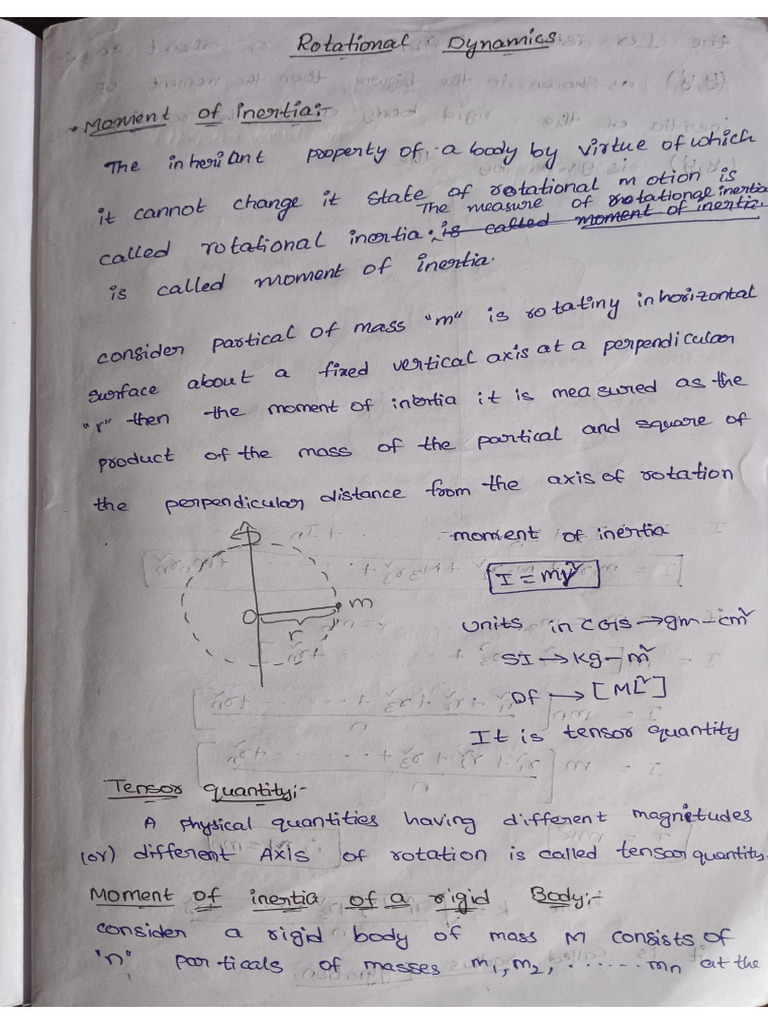 Rotational Dynamics
• Moment of inertia:-
The inheriant property of a body by virtue of which
it cannot change it state of rotational motion is
The measure of rotational inertia
called rotational inertia. is called moment of inertia.
is called moment of inertia.
consider partical of mass "m" is rotating in horizontal
surface about a fixed vertical axis at a perpendicular
"r" then the moment of inertia it is measured as the
product of the mass of the partical and square of
the perpendicular distance from the axis of rotation
moment of inertia
I = mr²
O r m
units in CGS → gm-cm²
SI → kg-m²
Df → [ML²]
It is tensor quantity
Tensor quantity:-
A Physical quantities having different magnitudes
(or) different Axis of rotation is called tensor quantity.
Moment of inertia of a rigid Body:-
consider a rigid body of mass M consists of
"n" particals of masses m₁, m₂, ....... mn at the